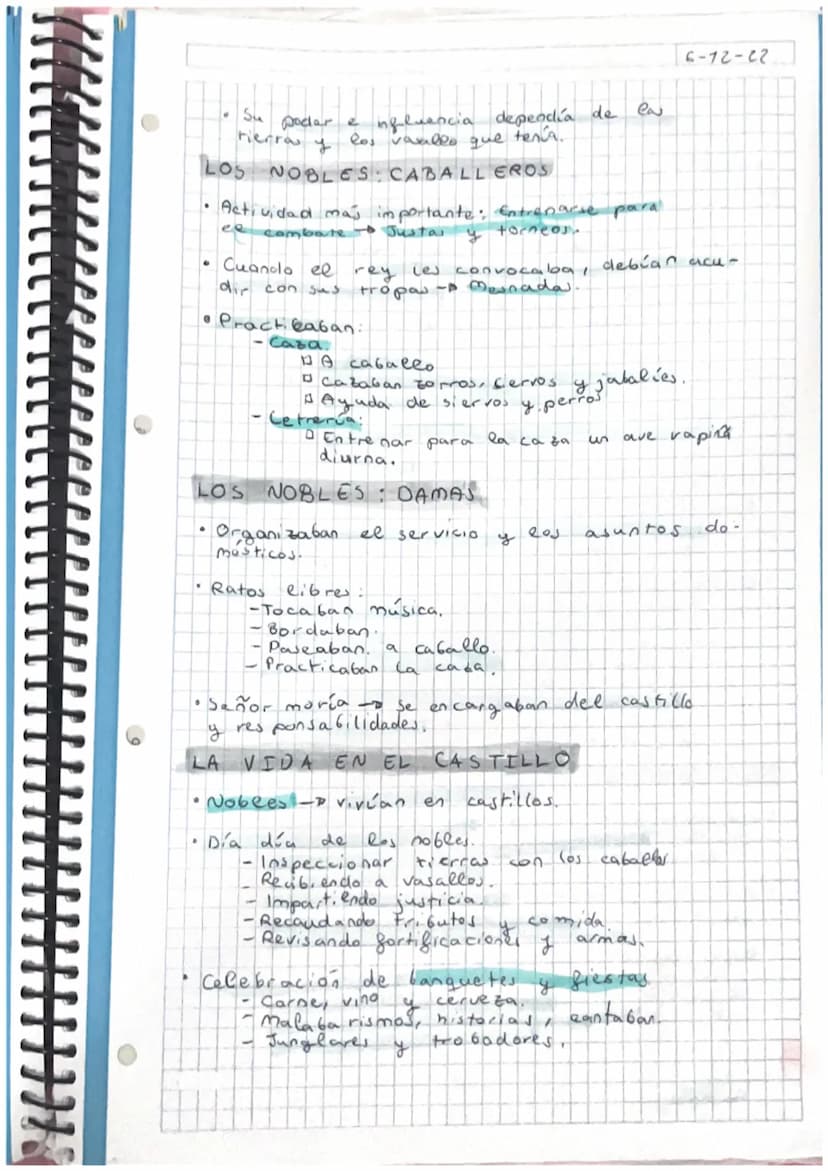 6-12-22
• Su poder e nfluencia dependía de las
tierras y los vasallo que tenía.
LOS NOBLES: CABALLEROS
• Actividad más importante: Entrenarse para
el combate → Justas y torneos.
• Cuando el rey les convocaba, debían acu-
dir con sus tropas → Mesnadas.
• Practicaban:
- Caza.
□ A caballo
□ Cazaban zorros, ciervos y jabalíes.
□ Ayuda de siervos y perros
- Cetrería:
□ Entrenar para la caza un ave rapiña
diurna.
LOS NOBLES: DAMAS
• Organizaban el servicio y los asuntos do-
mésticos.
• Ratos libres:
- Tocaban música.
- Bordaban.
- Paseaban a caballo.
- Practicaban la caza.
• Señor moría → se encargaban del castillo
y responsabilidades.
LA VIDA EN EL CASTILLO
• Nobles → vivían en castillos.
• Día día de los nobles.
- Inspeccionar tierras con los caballos
- Recibiendo a vasallos.
- Impartiendo justicia
- Recaudando tributos y comida.
- Revisando fortificaciones y armas.
• Celebración de banquetes y fiestas
- Carne, vino y cerveza.
- Malabarismos, historias, cantaban.
- Junglares y trobadores.